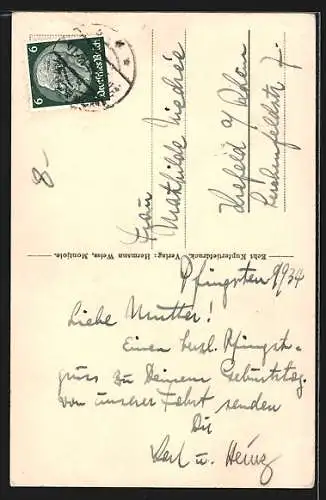 6
6
Deutsches Reich
8-
Frau
Mathilde
Krefeld a/Rhein
7.
Echt Kupfertiefdruck. Verlag: Hermann Weiss, Montjoie.
Pfingsten 1934
Liebe Mutter!
Einen herzl. Pfingst-
gruss zu Deinem Geburtstag.
von unserer Fahrt senden
Dir
Karl u. Heinz